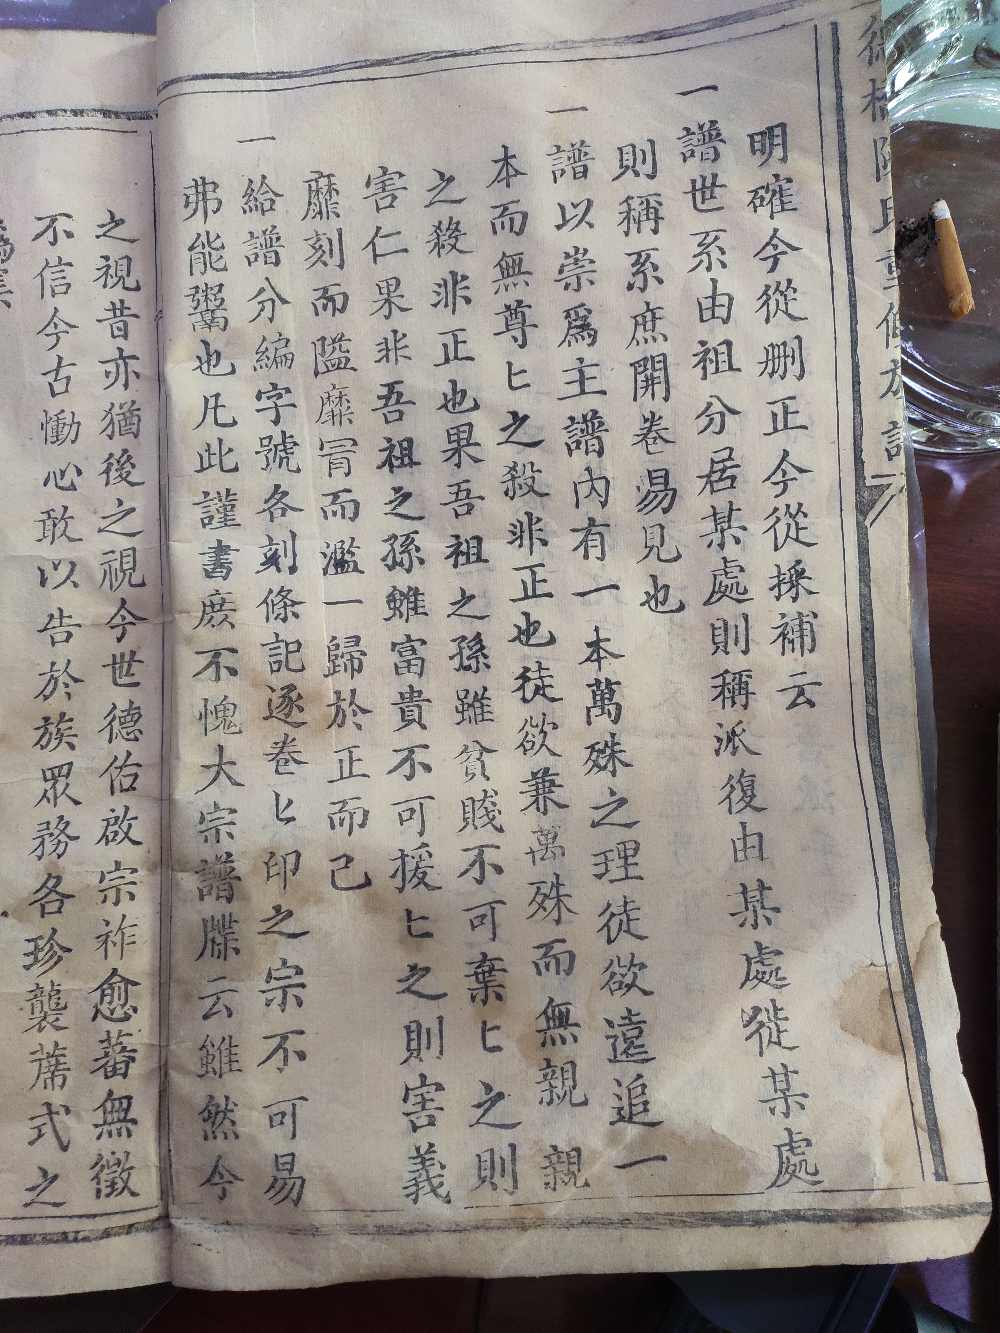 明確今從刪正今從採補云
一譜世系由祖分居某處則稱派復由某處徙某處
則稱系庶開卷易見也
一譜以崇爲主譜內有一本萬殊之理徒欲遠追一
本而無尊匕之殺非正也徒欲兼萬殊而無親親
之殺非正也果吾祖之孫雖貧賤不可棄匕之則
害仁果非吾祖之孫雖富貴不可援匕之則害義
靡刻而隘靡冒而濫一歸於正而已
一給譜分編字號各刻條記逐卷匕印之宗不可易
弗能鬻也凡此謹書庶不愧大宗譜牒云雖然今
之視昔亦猶後之視今世德佑啟宗祚愈蕃無徵
不信今古慟心敢以告於族眾務各珍襲蓆式之